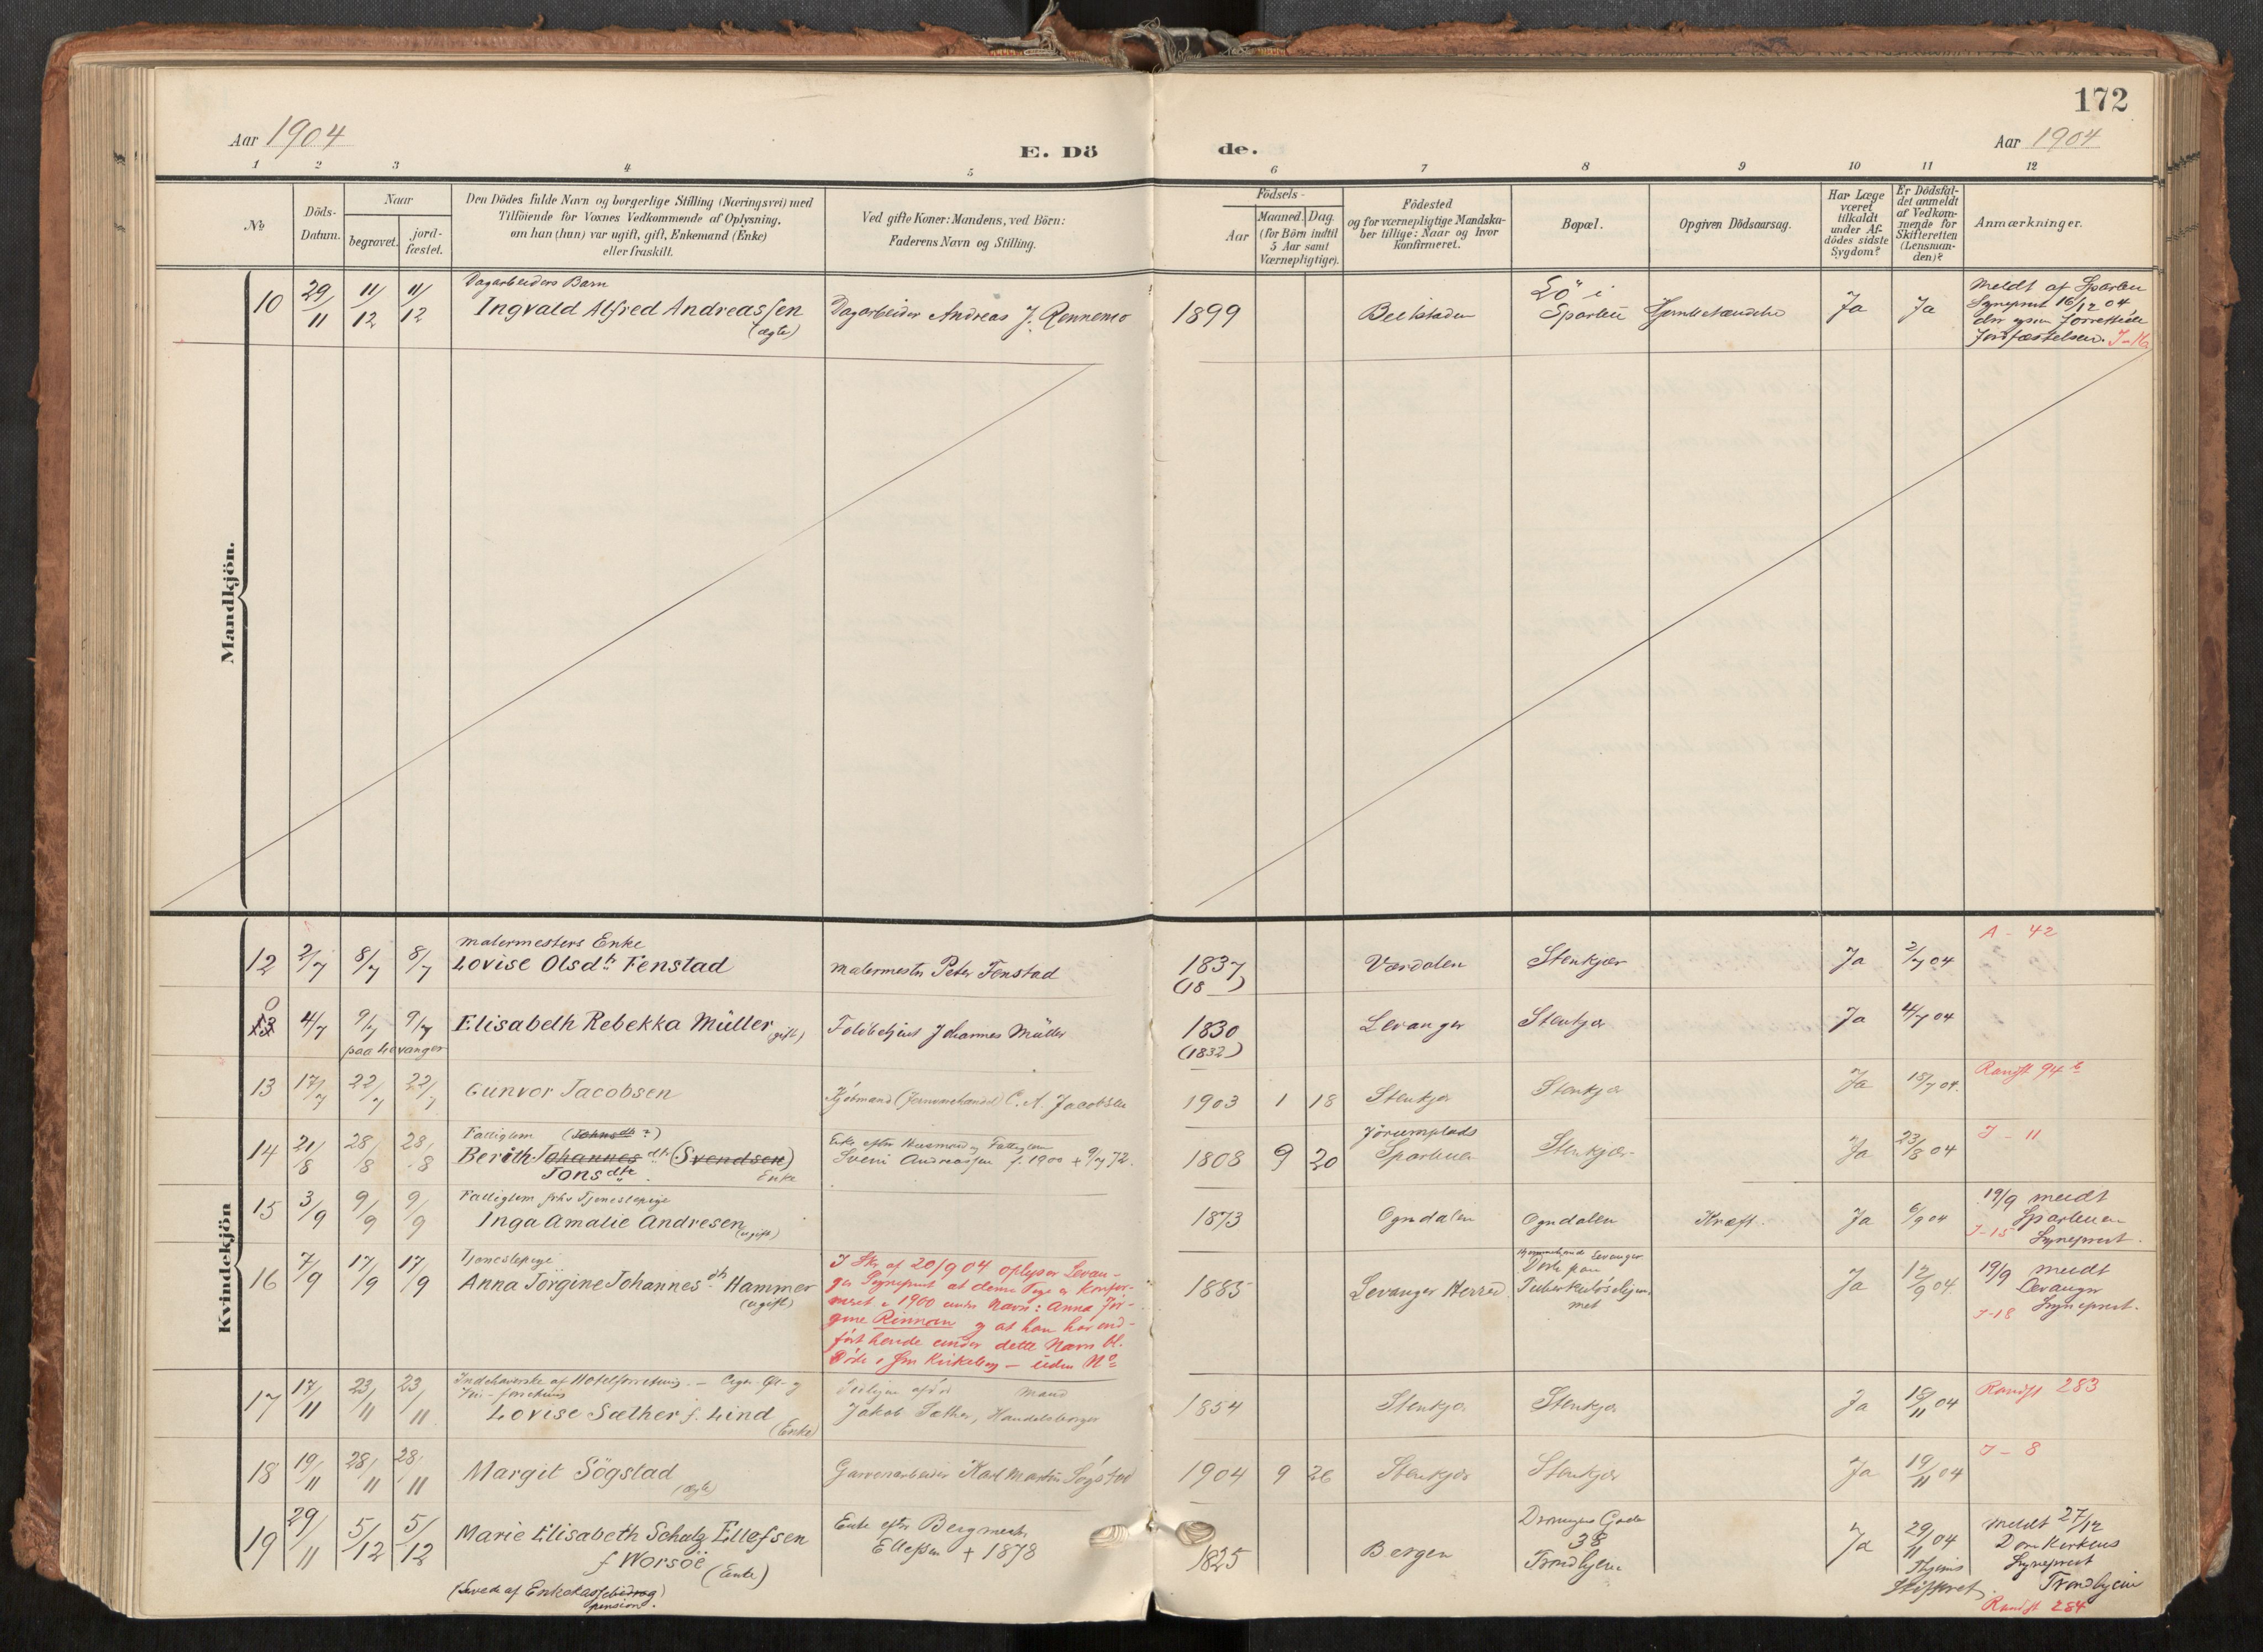 172
Aar 1904
E. Dö de.
Aar 1904
1 2 3 4 5 6 7 8 9 10 11 12
No
Döds-
Datum.
Naar
begravet.
jord-
fæstet.
Den Dödes fulde Navn og borgerlige Stilling (Næringsvei) med
Tilföiende for Voxnes Vedkommende af Oplysning,
om han (hun) var ugift, gift, Enkemand (Enke)
eller fraskilt.
Ved gifte Koner: Mandens, ved Börn:
Faderens Navn og Stilling.
Födsels-
Aar
Maaned. Dag
(for Börn indtil
5 Aar samt
Værnepligtige).
Födested
og for værnepligtige Mandska-
ber tillige: Naar og hvor
konfirmeret.
Bopæl.
Opgiven Dödsaarsag.
Har Læge
været
tilkaldt
under Af-
dödes sidste
Sygdom?
Er Dödsfal-
det anmeldt
af Vedkom-
mende for
Skifteretten
(Lensman-
den)?
Anmærkninger.
Mandkjön.
Dagarbeiders Barn
10 29/11 11/12 11/12 Ingvald Alfred Andreassen
(ægte)
Dagarbeider Andreas J. Rennemo
1899
Beitstaden
Lö i
Sparbu
Ja
Ja
Meldt af Sparbu
Sognepræst 16/12 04
der ogsaa forrettede
Jordfæstelsen. J-16
Kvindekjön
Malermesters Enke
12 2/7 8/7 8/7 Lovise Olsdtr Fenstad
Malermester Peter Fenstad
1837
(18 )
Værdalen
Stenkjær
Ja
2/7 04
A - 42
0
13 4/7 9/7 9/7 Elisabeth Rebekka Müller (gift)
paa Levanger
Toldbetjent Johannes Müller
1830
(1832)
Levanger
Stenkjær
Ja
4/7 04
13 17/7 22/7 22/7 Gunvor Jacobsen
Kjöbmand (Jernvarehandel) C. A. Jacobsen
1903 1 18
Stenkjær
Stenkjær
Ja
18/7 04.
Randft 94 b
Fattiglem (Johnsdtr?)
14 21/8 28/8 28/8 Berith Johannesdtr (Svendsen)
Jonsdtr Enke
Enke efter Husmand og Fattiglem
Svein Andreassen f. 1900 + 9/7 72.
1808 9 20
Jörumplads
Sparbuen
Stenkjær
Ja
23/8 04
J - 11
Fattiglem, frhv Tjenestepige
15 3/9 9/9 9/9 Inga Amalie Andresen
(ugift)
1873
Ogndalen
Ogndalen
Kræft.
Ja
6/9 04
19/9 meldt
Sparbuen
J-15 Sognepræst.
Tjenestepige
16 7/9 17/9 17/9 Anna Jörgine Johannesdtr Hammer
(ugift)
I Skr af 20/9 04 oplyser Levan-
ger Sognepræst at denne Pige er konfir-
meret i 1900 under Navn: Anna Jör-
gine Rinnan og at han har ind-
fört hende under dette Navn bl.
Döde i sin Kirkebog — uden No
1885
Levanger Herred
Hjemmehörende Levanger
Döde paa
Tuberkulöshjem-
met
Ja
12/9 04.
19/9 meldt
Levanger
J-18 Sognepræst.
Indehaverske af Hotelforretning. — Cigar- Öl- og
Vin-forretning
17 17/11 23/11 23/11 Lovise Sæther f. Lind
(Enke)
Mand
Jakob Sæther, Handelsborger
1854
Stenkjær
Stenkjær
Ja
18/11 04
Randft 283
18 19/11 28/11 28/11 Margit Sögstad
(ægte)
Garverarbeider Karl Martin Sögstad
1904 9 26
Stenkjær
Stenkjær
Ja
19/11 04
J - 8
19 29/11 5/12 5/12 Marie Elisabeth Schulz Ellefsen
f Worsöe (Enke)
(Levede af Enkekassebidrag)
pension.
Enke efter Bergmester
Ellefsen + 1878
1825
Bergen
Dronningens Gade
38
Trondhjem
Ja
29/11 04
Thjems
Skifteret.
Meldt 27/12
Domkirkens
Sognepræst
Trondhjem
Randft 284